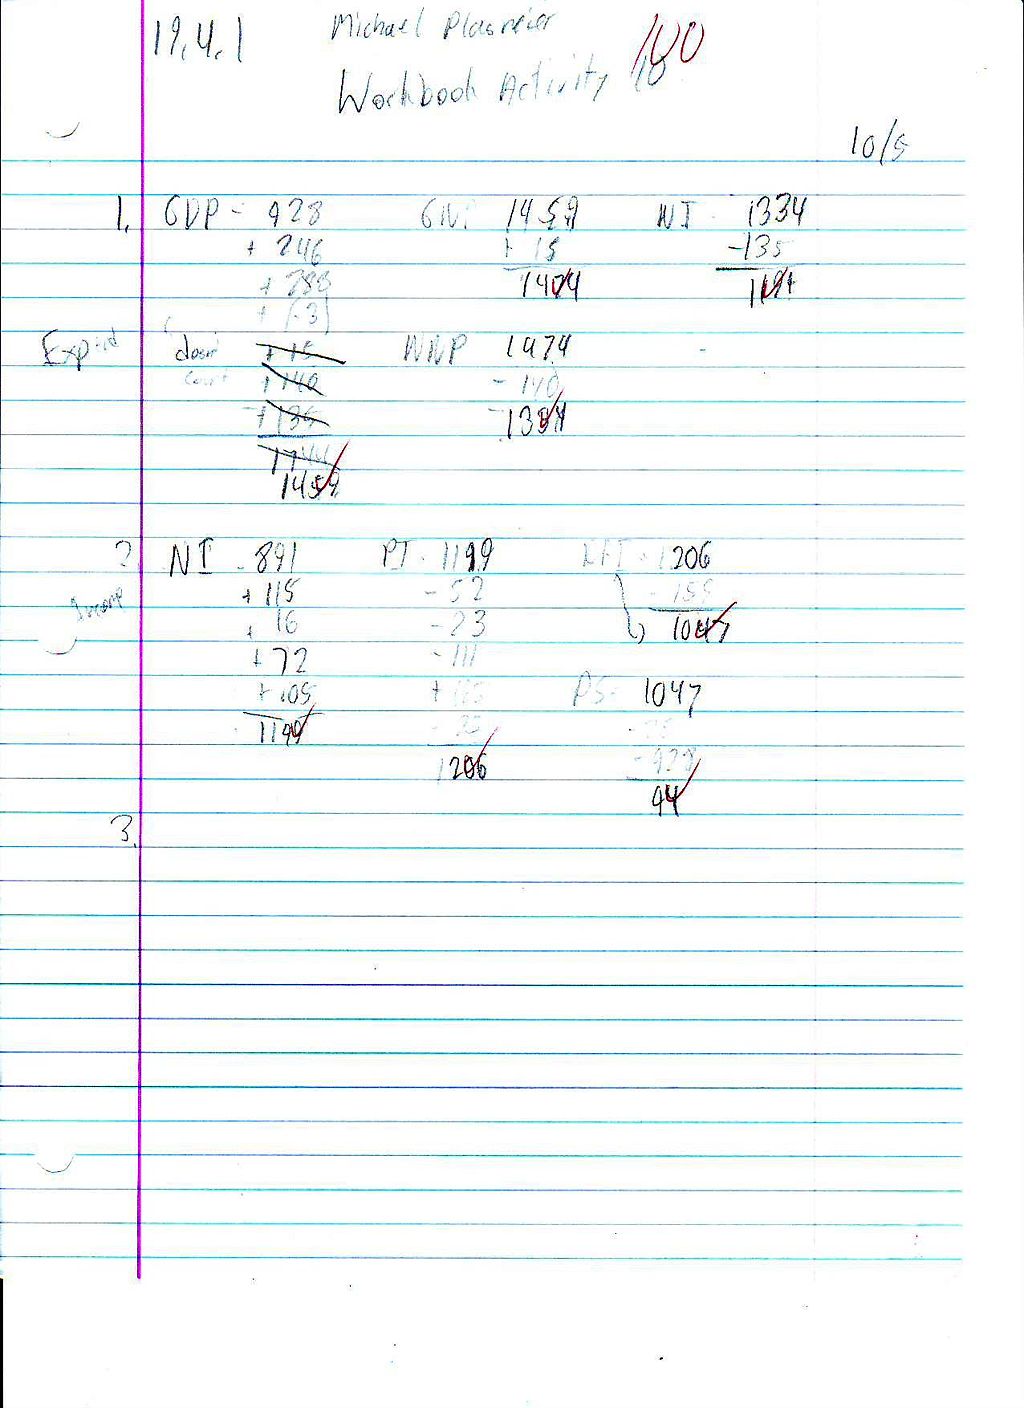 19.4.1 Michael Plasmeier 100
Workbook Activity 10
10/5
1. GDP - 928 GNP 1459 NI - 1334
+ 246 + 15 -135
+ 288 1474 1199
+ (-3)
Expend doesn't + 15 NNP 1474
count + 140 - 140
+ 135 1334
1744
1459
2. NI - 891 PI - 1199 DPI - 1206
Income + 115 - 52 - 159
+ 16 - 23 1047
+ 72 - 111
+ 105 PS - 1047
1199
1206 - 928
94
3.